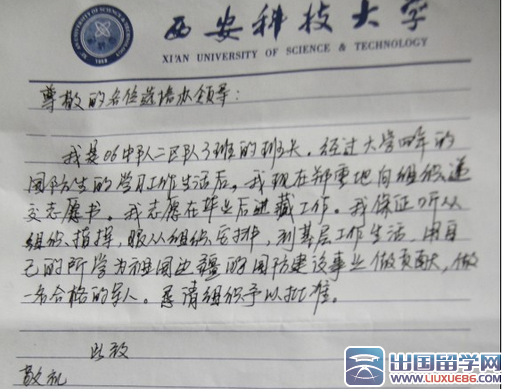 西安科技大学
XI'AN UNIVERSITY OF SCIENCE & TECHNOLOGY
尊敬的各位选培办领导：
我是06中队二区队3班的班长，经过大学四年的
国防生的学习工作生活后，我现在郑重地向组织递
交志愿书。我志愿在毕业后进藏工作。我保证听从
组织指挥，服从组织安排，到基层工作生活，用自
己的所学为祖国边疆的国防建设事业做贡献，做
一名合格的军人。恳请组织予以批准。
此致
敬礼
出国留学网
WWW.LIUXUE86.COM